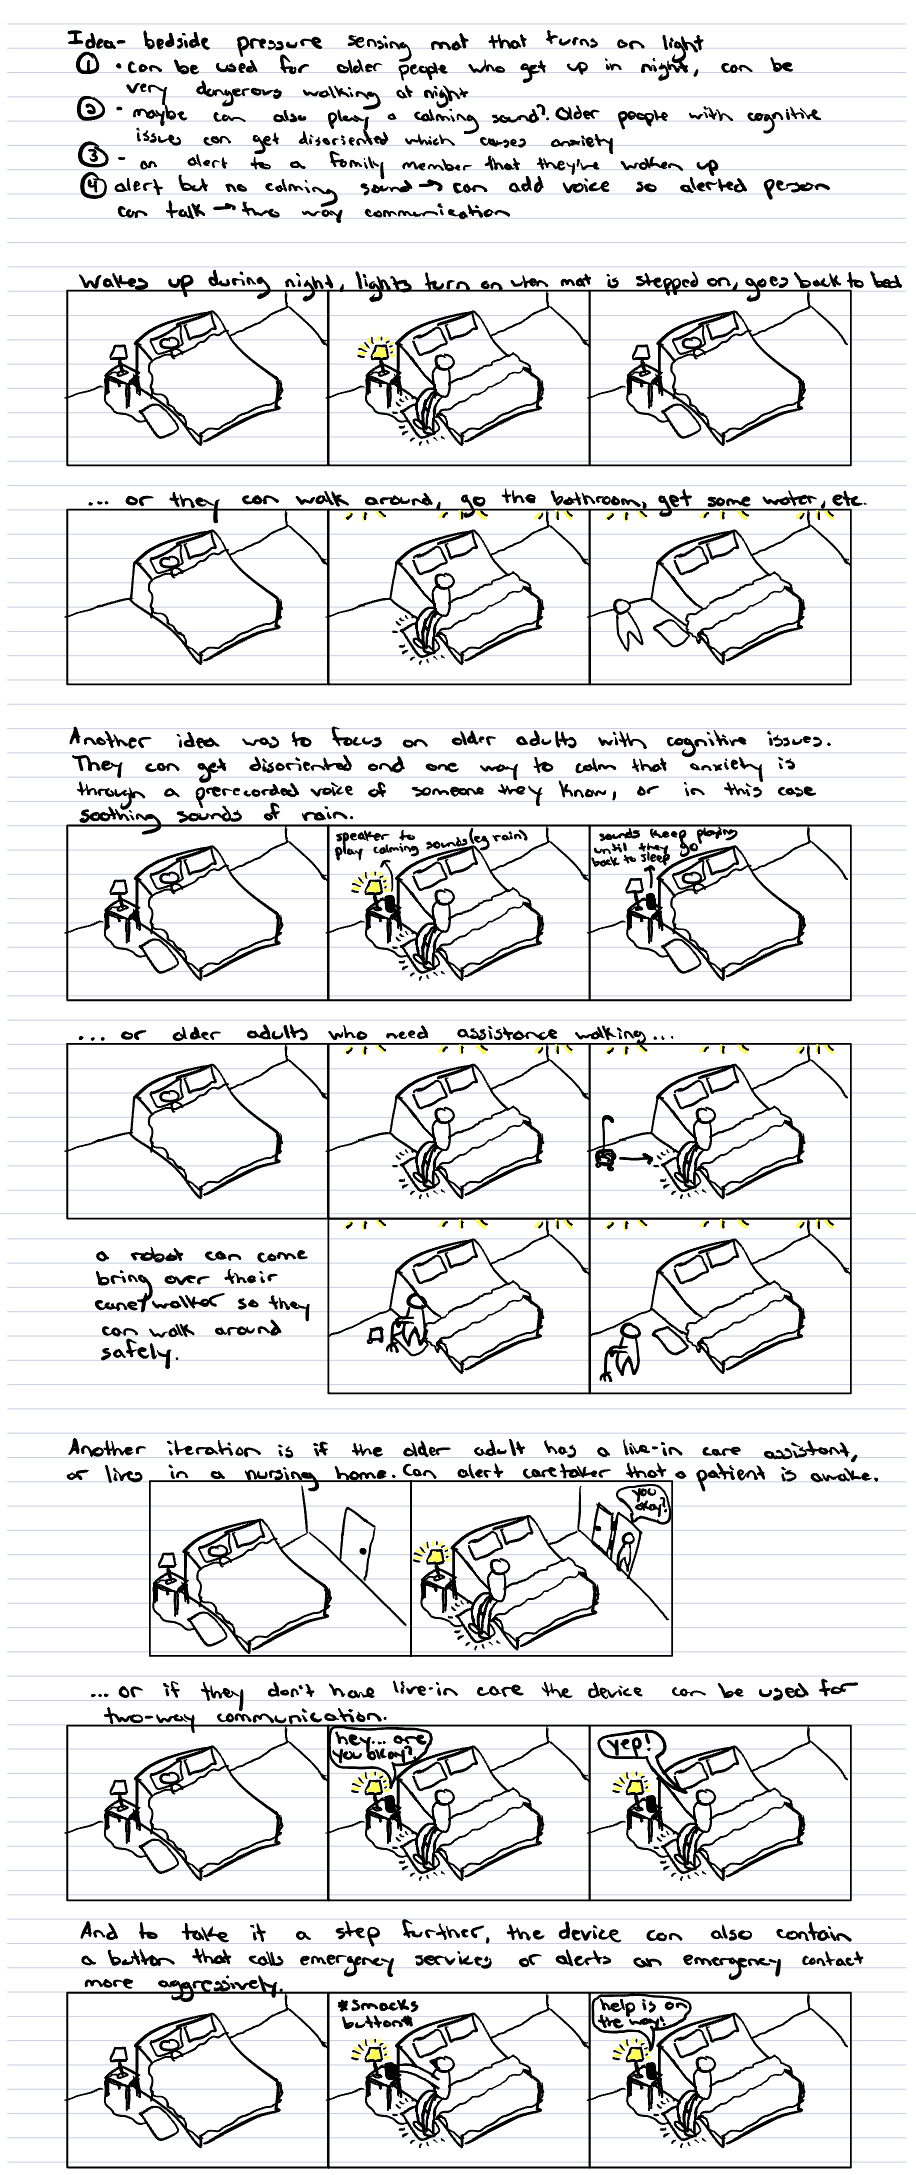 Idea- bedside pressure sensing mat that turns on light
① • can be used for older people who get up in night, can be
very dangerous walking at night
② - maybe can also play a calming sound? Older people with cognitive
issues can get disoriented which causes anxiety
③ - an alert to a family member that they've woken up
④ alert but no calming sound → can add voice so alerted person
can talk → two way communication
Wakes up during night, lights turn on when mat is stepped on, goes back to bed
... or they can walk around, go the bathroom, get some water, etc.
Another idea was to focus on older adults with cognitive issues.
They can get disoriented and one way to calm that anxiety is
through a prerecorded voice of someone they know, or in this case
soothing sounds of rain.
speaker to
play calming sounds (eg rain)
sounds keep playing
until they go
back to sleep
... or older adults who need assistance walking...
a robot can come
bring over their
cane/walker so they
can walk around
safely.
Another iteration is if the older adult has a live-in care assistant,
or lives in a nursing home. Can alert caretaker that a patient is awake.
you
okay?
... or if they don't have live-in care the device can be used for
two-way communication.
hey... are
you okay?
yep!
And to take it a step further, the device can also contain
a button that calls emergency services or alerts an emergency contact
more aggressively.
*smacks
button*
help is on
the way!